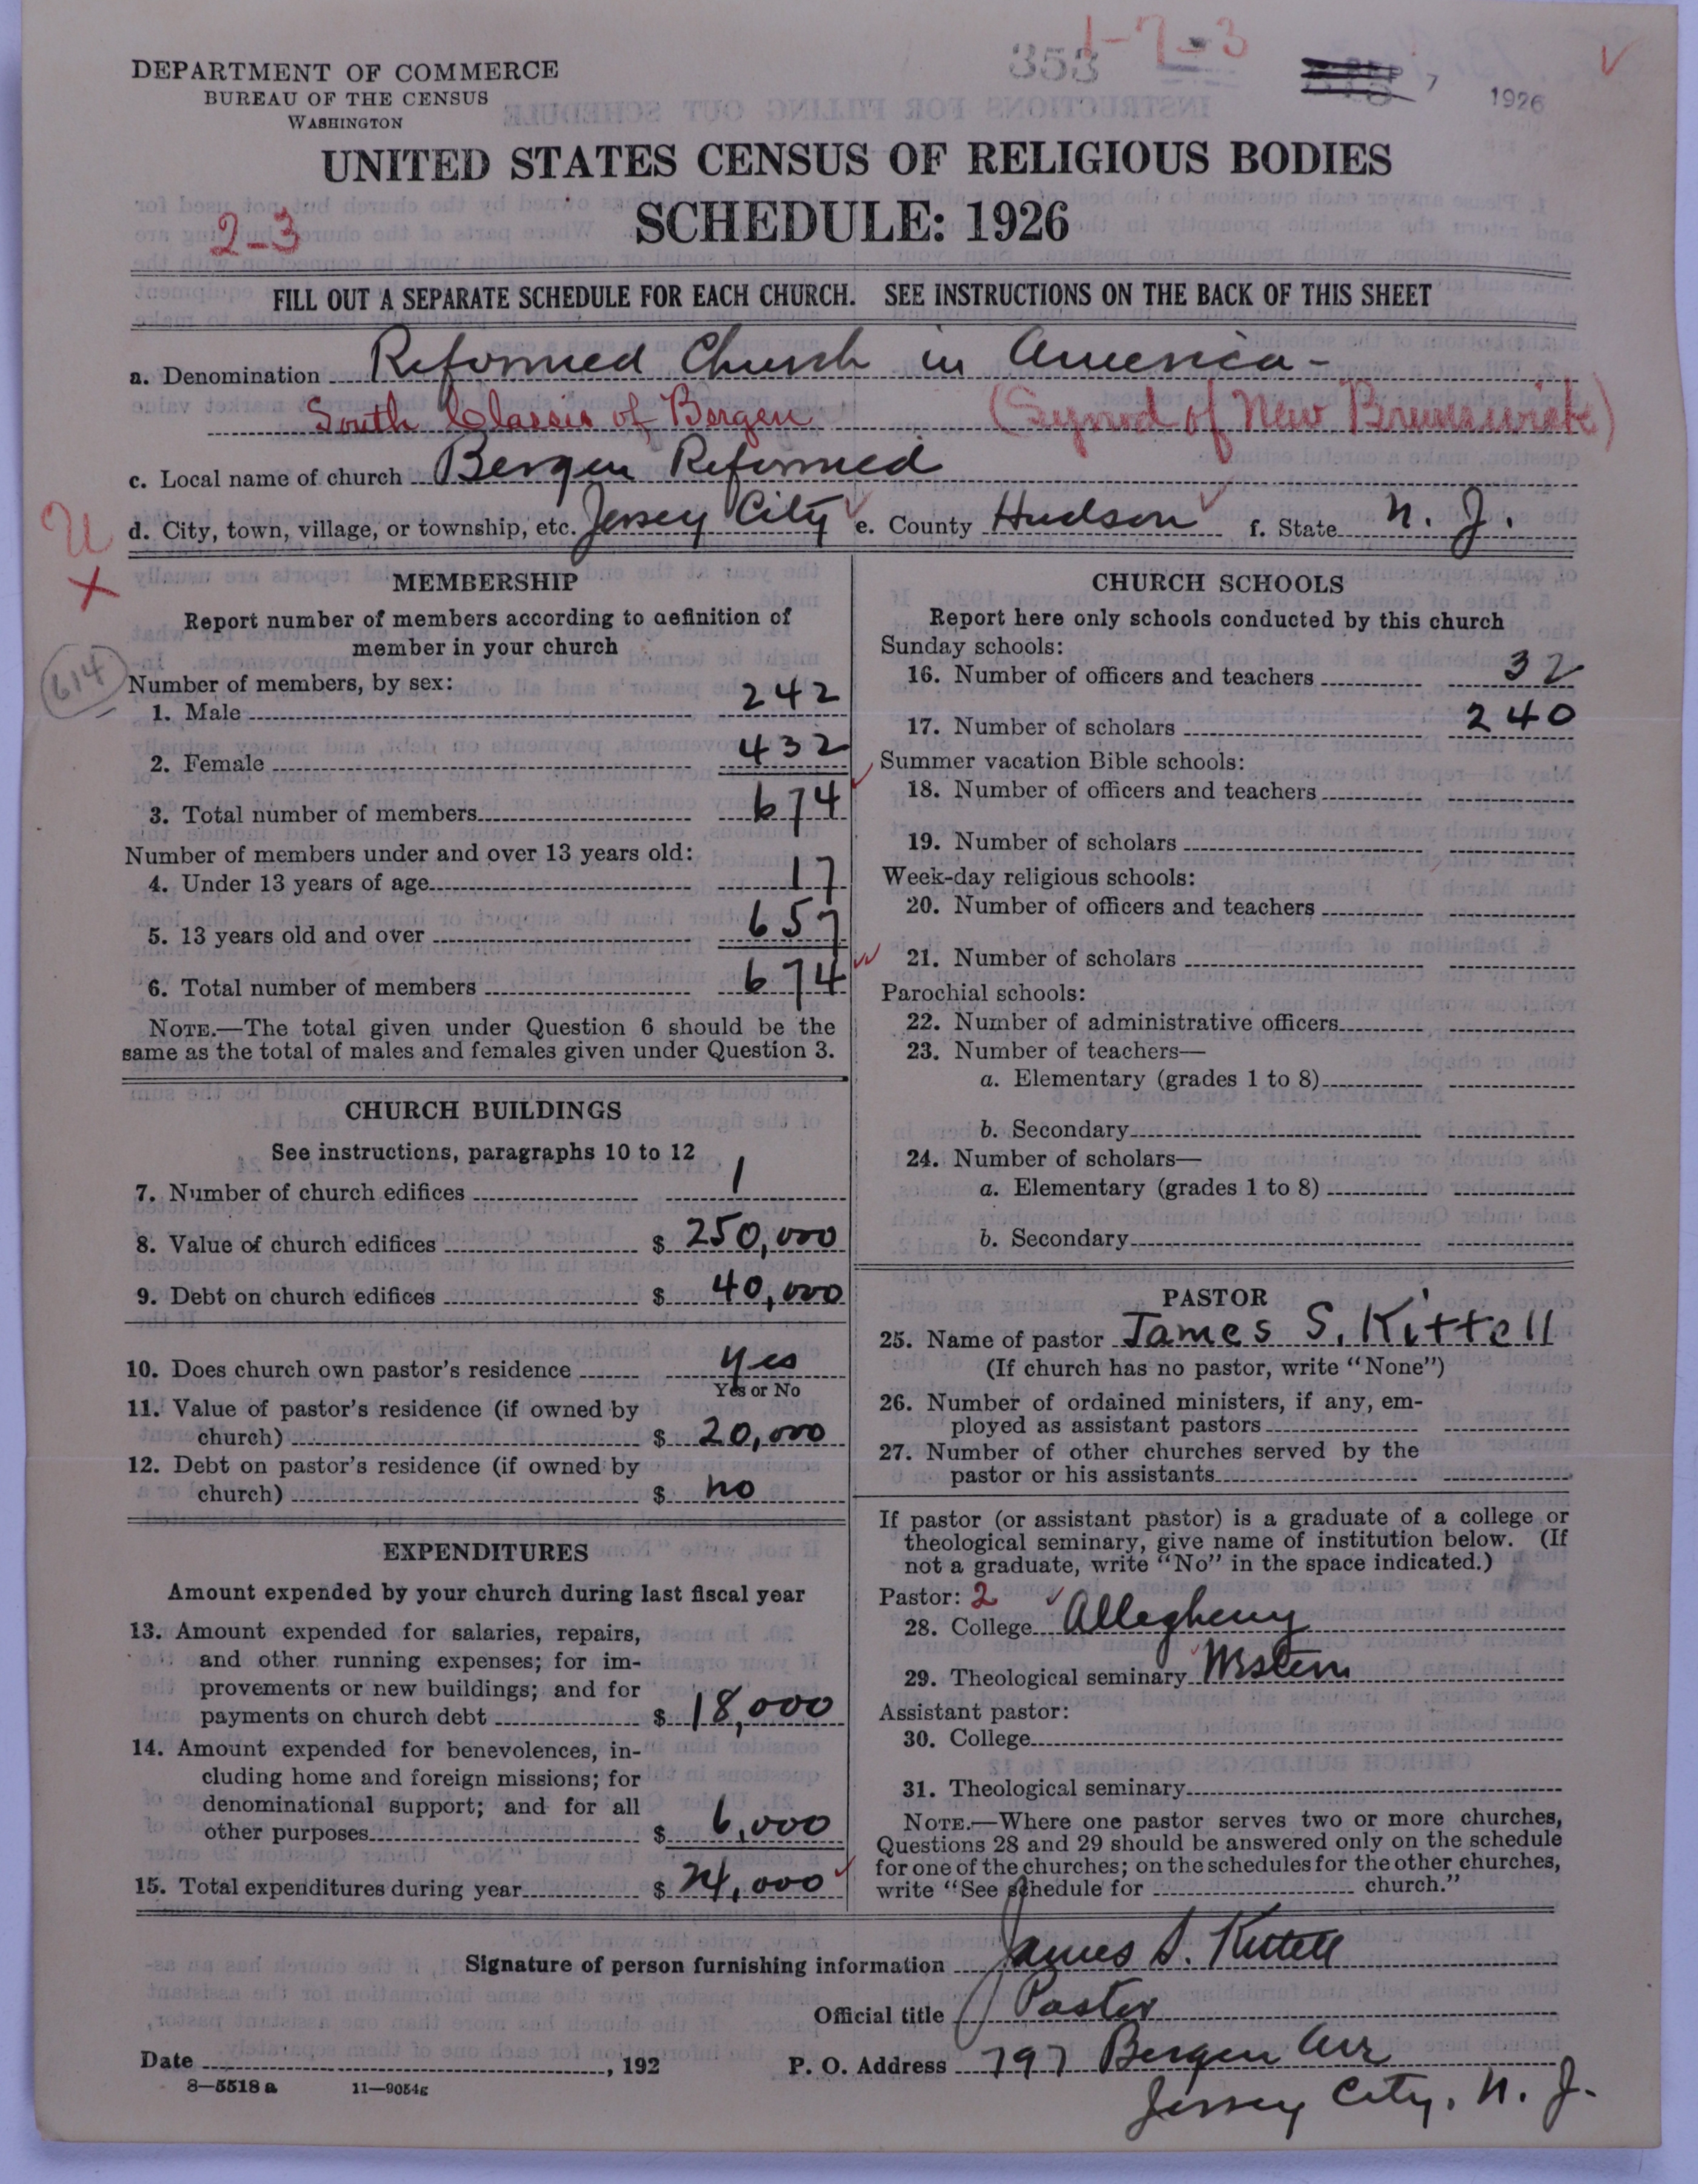 353 1-7-3
DEPARTMENT OF COMMERCE
BUREAU OF THE CENSUS
WASHINGTON
1926
UNITED STATES CENSUS OF RELIGIOUS BODIES
2-3
SCHEDULE: 1926
FILL OUT A SEPARATE SCHEDULE FOR EACH CHURCH. SEE INSTRUCTIONS ON THE BACK OF THIS SHEET
a. Denomination Reformed Church in America-
South Classis of Bergen (Synod of New Brunswick)
c. Local name of church Bergen Reformed
d. City, town, village, or township, etc. Jersey City e. County Hudson f. State N. J.
U
X
614
MEMBERSHIP
Report number of members according to definition of
member in your church
Number of members, by sex:
1. Male 242
2. Female 432
3. Total number of members 674
Number of members under and over 13 years old:
4. Under 13 years of age 17
5. 13 years old and over 657
6. Total number of members 674
NOTE.—The total given under Question 6 should be the
same as the total of males and females given under Question 3.
CHURCH BUILDINGS
See instructions, paragraphs 10 to 12
7. Number of church edifices 1
8. Value of church edifices $ 250,000
9. Debt on church edifices $ 40,000
10. Does church own pastor's residence yes
Yes or No
11. Value of pastor's residence (if owned by
church) $ 20,000
12. Debt on pastor's residence (if owned by
church) $ no
EXPENDITURES
Amount expended by your church during last fiscal year
13. Amount expended for salaries, repairs,
and other running expenses; for im-
provements or new buildings; and for
payments on church debt $ 18,000
14. Amount expended for benevolences, in-
cluding home and foreign missions; for
denominational support; and for all
other purposes $ 6,000
15. Total expenditures during year $ 24,000
CHURCH SCHOOLS
Report here only schools conducted by this church
Sunday schools:
16. Number of officers and teachers 32
17. Number of scholars 240
Summer vacation Bible schools:
18. Number of officers and teachers
19. Number of scholars
Week-day religious schools:
20. Number of officers and teachers
21. Number of scholars
Parochial schools:
22. Number of administrative officers
23. Number of teachers—
a. Elementary (grades 1 to 8)
b. Secondary
24. Number of scholars—
a. Elementary (grades 1 to 8)
b. Secondary
PASTOR
25. Name of pastor James S. Kittell
(If church has no pastor, write "None")
26. Number of ordained ministers, if any, em-
ployed as assistant pastors
27. Number of other churches served by the
pastor or his assistants
If pastor (or assistant pastor) is a graduate of a college or
theological seminary, give name of institution below. (If
not a graduate, write "No" in the space indicated.)
Pastor: 2
28. College Allegheny
29. Theological seminary Western
Assistant pastor:
30. College
31. Theological seminary
NOTE.—Where one pastor serves two or more churches,
Questions 28 and 29 should be answered only on the schedule
for one of the churches; on the schedules for the other churches,
write "See schedule for church."
Signature of person furnishing information James S. Kittell
Official title Pastor
Date , 192 P. O. Address 797 Bergen Ave
Jersey City, N. J.
8—5518 a 11—9054g